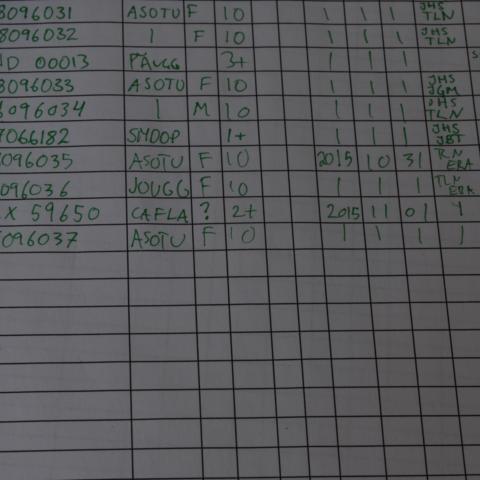 8096031 ASOTU F 10 1 1 1 JHS TLN
8096032 1 F 10 1 1 1 JHS TLN
D 00013 PÄUGG 3+ 1 1 1 S
8096033 ASOTU F 10 1 1 1 JHS JGM
8096034 1 M 10 1 1 1 JHS TLN
7066182 SMDOP 1+ 1 1 1 JHS JBT
096035 ASOTU F 10 2015 10 31 ERA
096036 JOUGG F 10 1 1 1 TLN ERA
X 59650 CAFLA ? 2+ 2015 11 01 Y
096037 ASOTU F 10 1 1 1 1